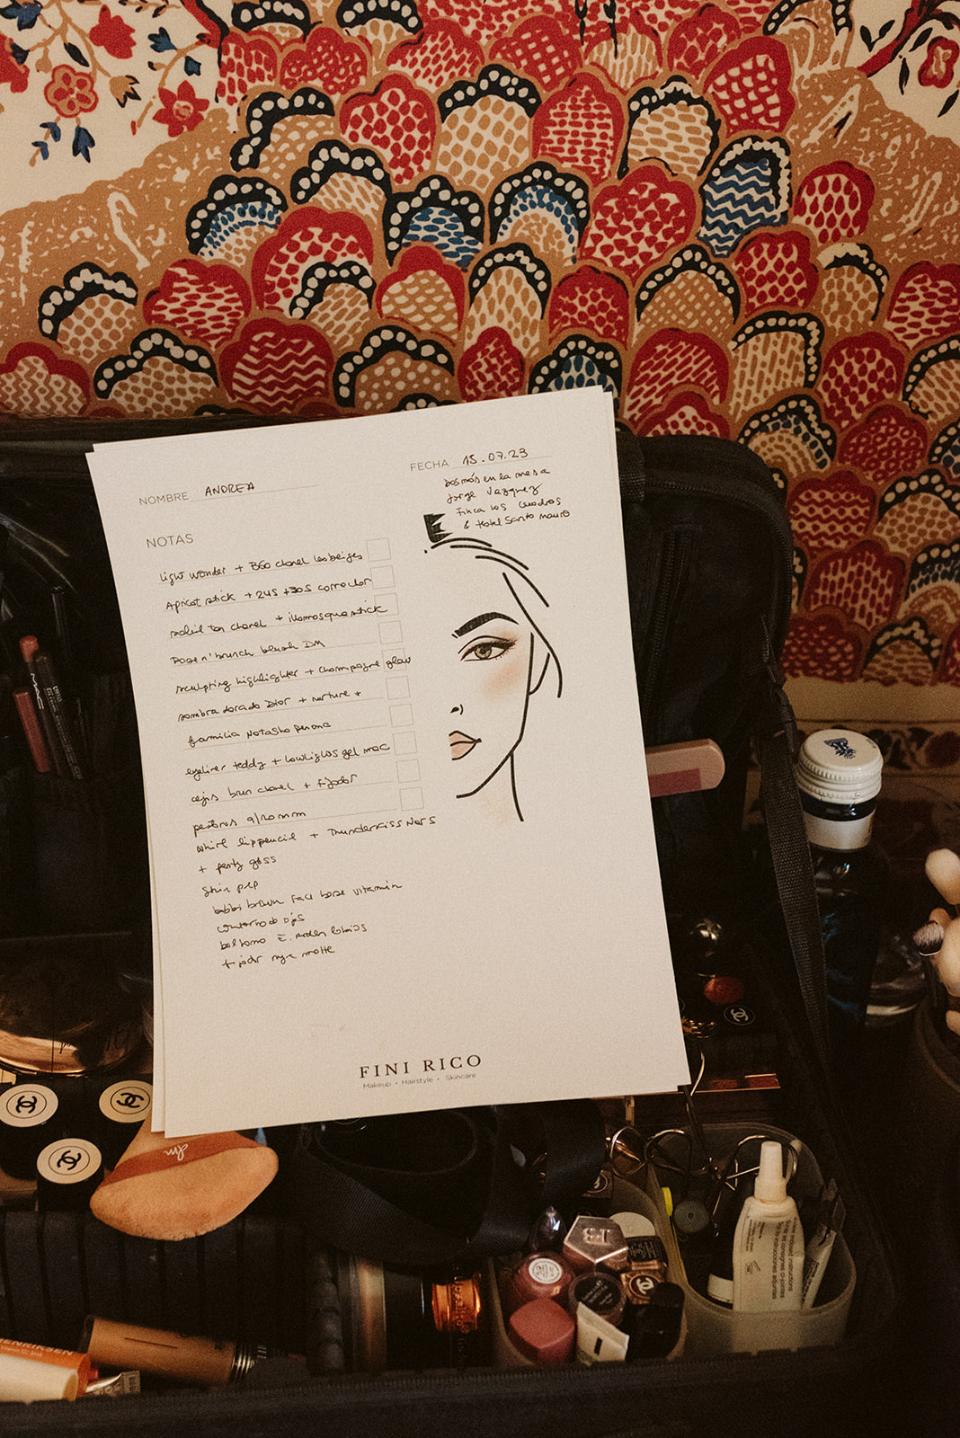 FECHA 15.07.23
NOMBRE ANDREA
en la mesa
Jorge Vazquez
Finca los
& Hotel Santo Mauro
NOTAS
light wonder + B60 chanel les beiges
Apricot stick + 245 + 305 corrector
soleil tan chanel + stick
brunch blush DM
sculpting highlighter + champagne glow
sombra dorado Dior + nurture +
familia Natasha Denona
eyeliner teddy + lowlights gel mac
cejas brun chanel + fijador
9/10 mm
whirl lippencil + Thunderkiss Nars
+ fenty gloss
Skin prep
bobbi brown face base vitamin
contorno de ojos
balsamo E. arden labios
+
FINI RICO
Makeup • Hairstyle • Skincare
MAC
dm
HENRIKSEN